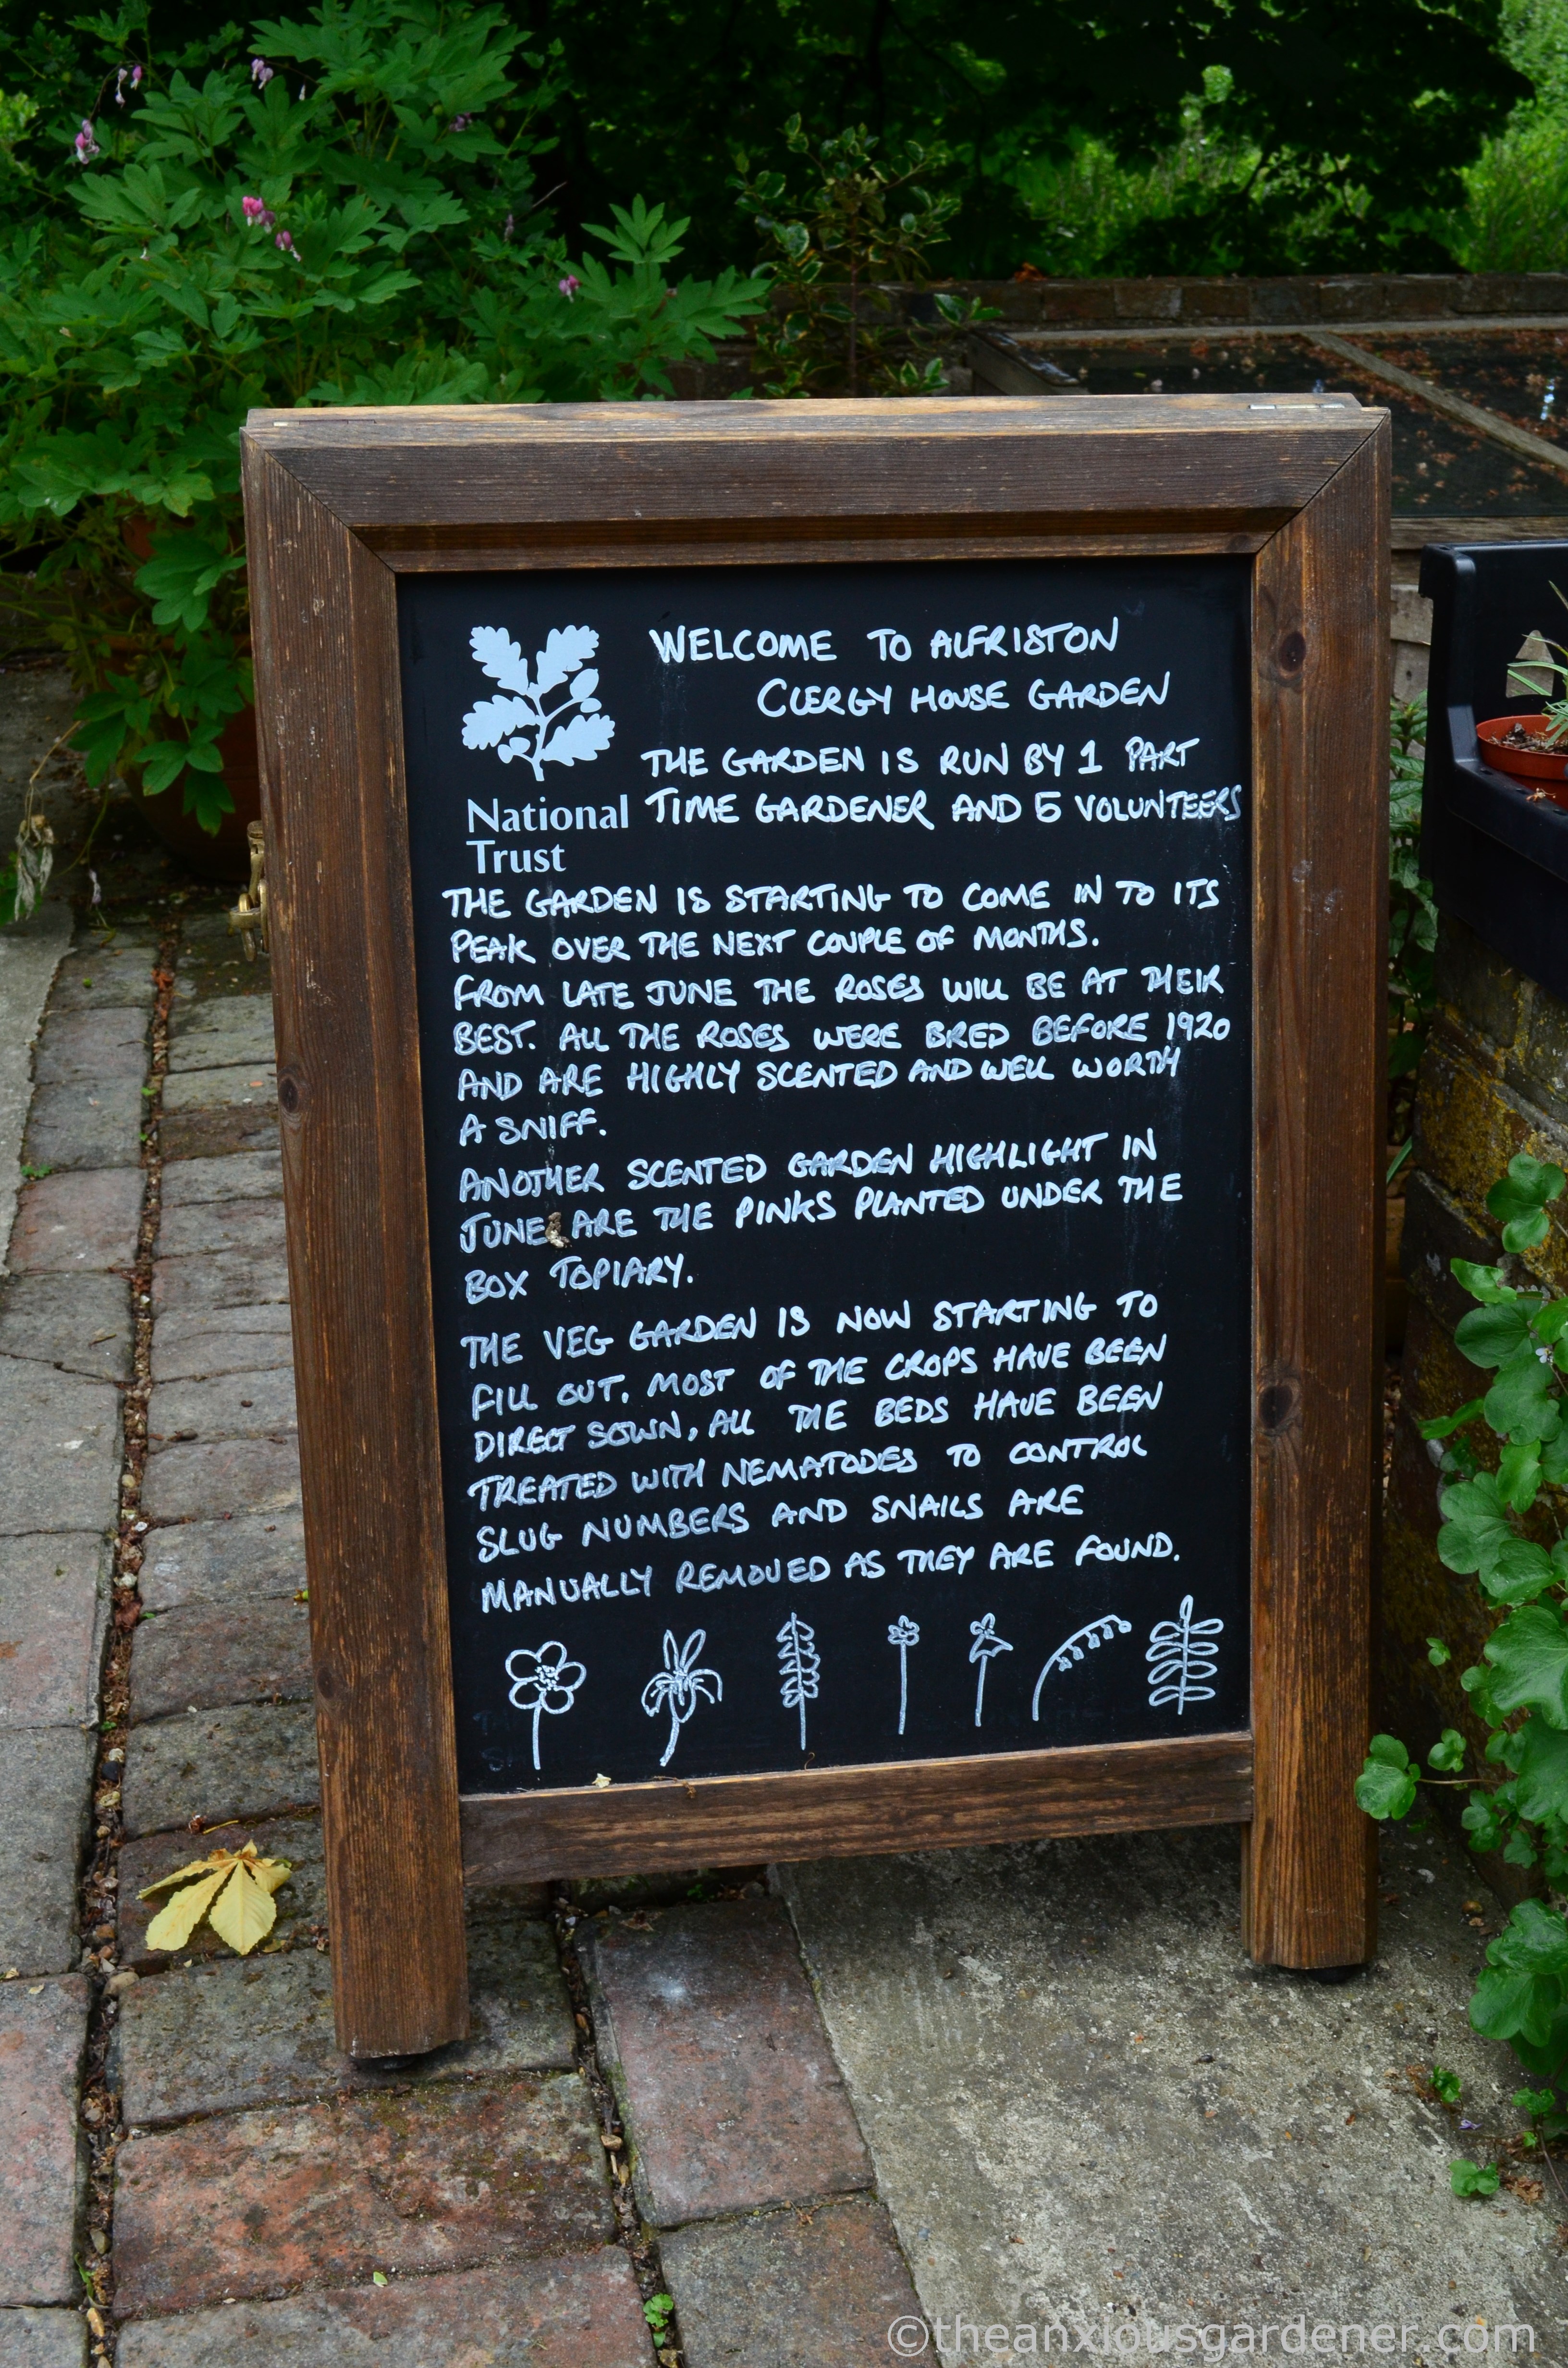 WELCOME TO ALFRISTON
CLERGY HOUSE GARDEN
THE GARDEN IS RUN BY 1 PART
TIME GARDENER AND 5 VOLUNTEERS
National
Trust
THE GARDEN IS STARTING TO COME IN TO ITS
PEAK OVER THE NEXT COUPLE OF MONTHS.
FROM LATE JUNE THE ROSES WILL BE AT THEIR
BEST. ALL THE ROSES WERE BRED BEFORE 1920
AND ARE HIGHLY SCENTED AND WELL WORTH
A SNIFF.
ANOTHER SCENTED GARDEN HIGHLIGHT IN
JUNE ARE THE PINKS PLANTED UNDER THE
BOX TOPIARY.
THE VEG GARDEN IS NOW STARTING TO
FILL OUT. MOST OF THE CROPS HAVE BEEN
DIRECT SOWN, ALL THE BEDS HAVE BEEN
TREATED WITH NEMATODES TO CONTROL
SLUG NUMBERS AND SNAILS ARE
MANUALLY REMOVED AS THEY ARE FOUND.
©theanxiousgardener.com